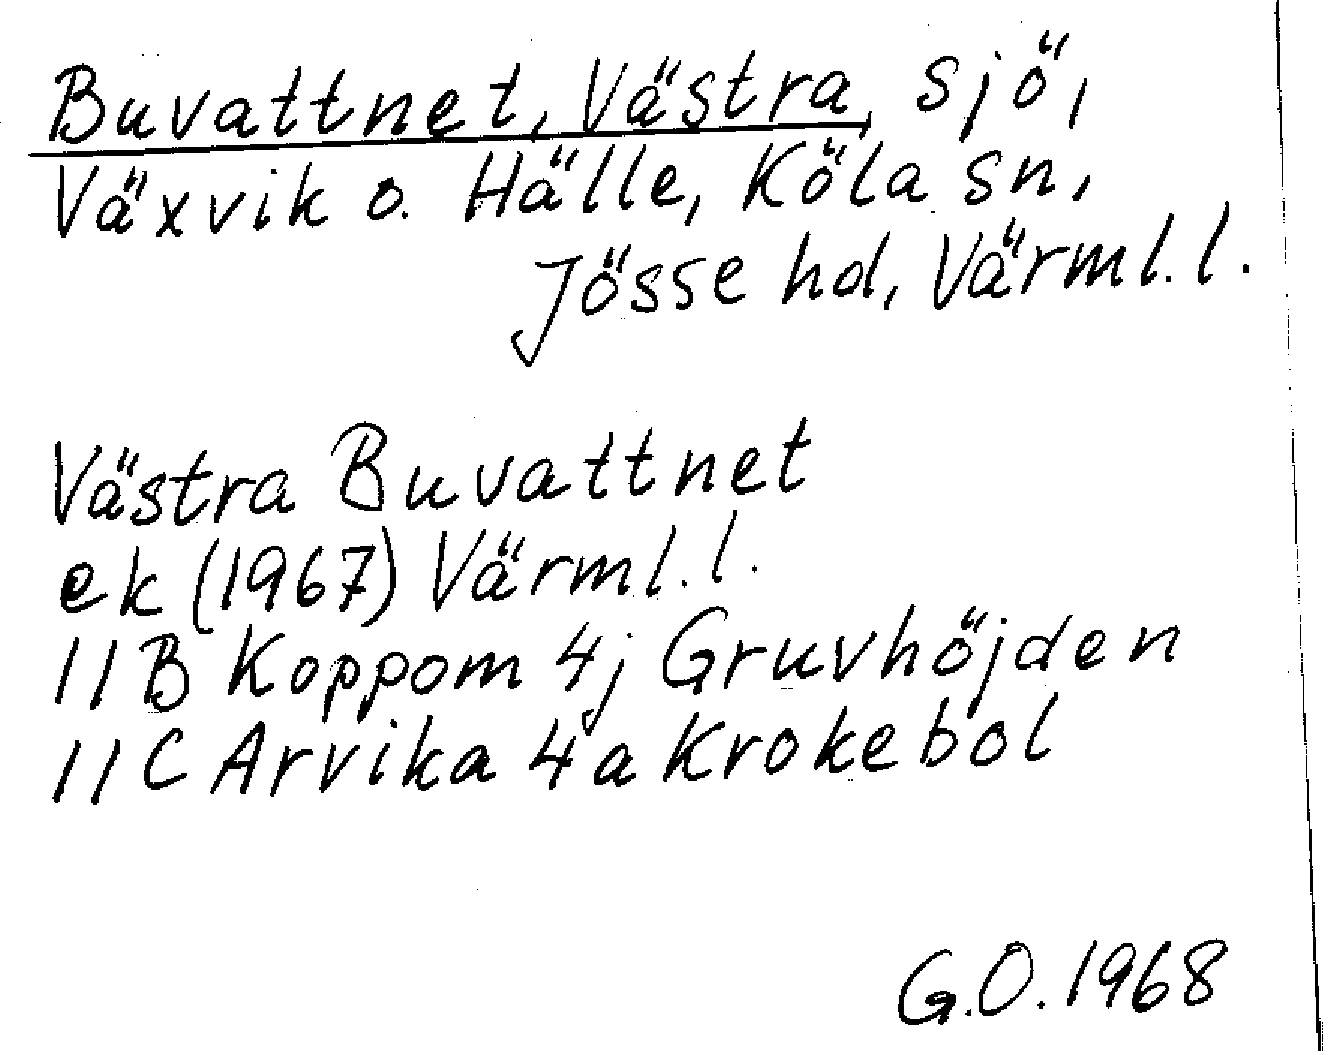 Buvattnet, Västra, sjö,
Växvik o. Hälle, Köla sn,
Jösse hd, Värml. l.
Västra Buvattnet
ek (1967) Värml. l.
11B Koppom 4j Gruvhöjden
11C Arvika 4a Krokebol
G.O. 1968